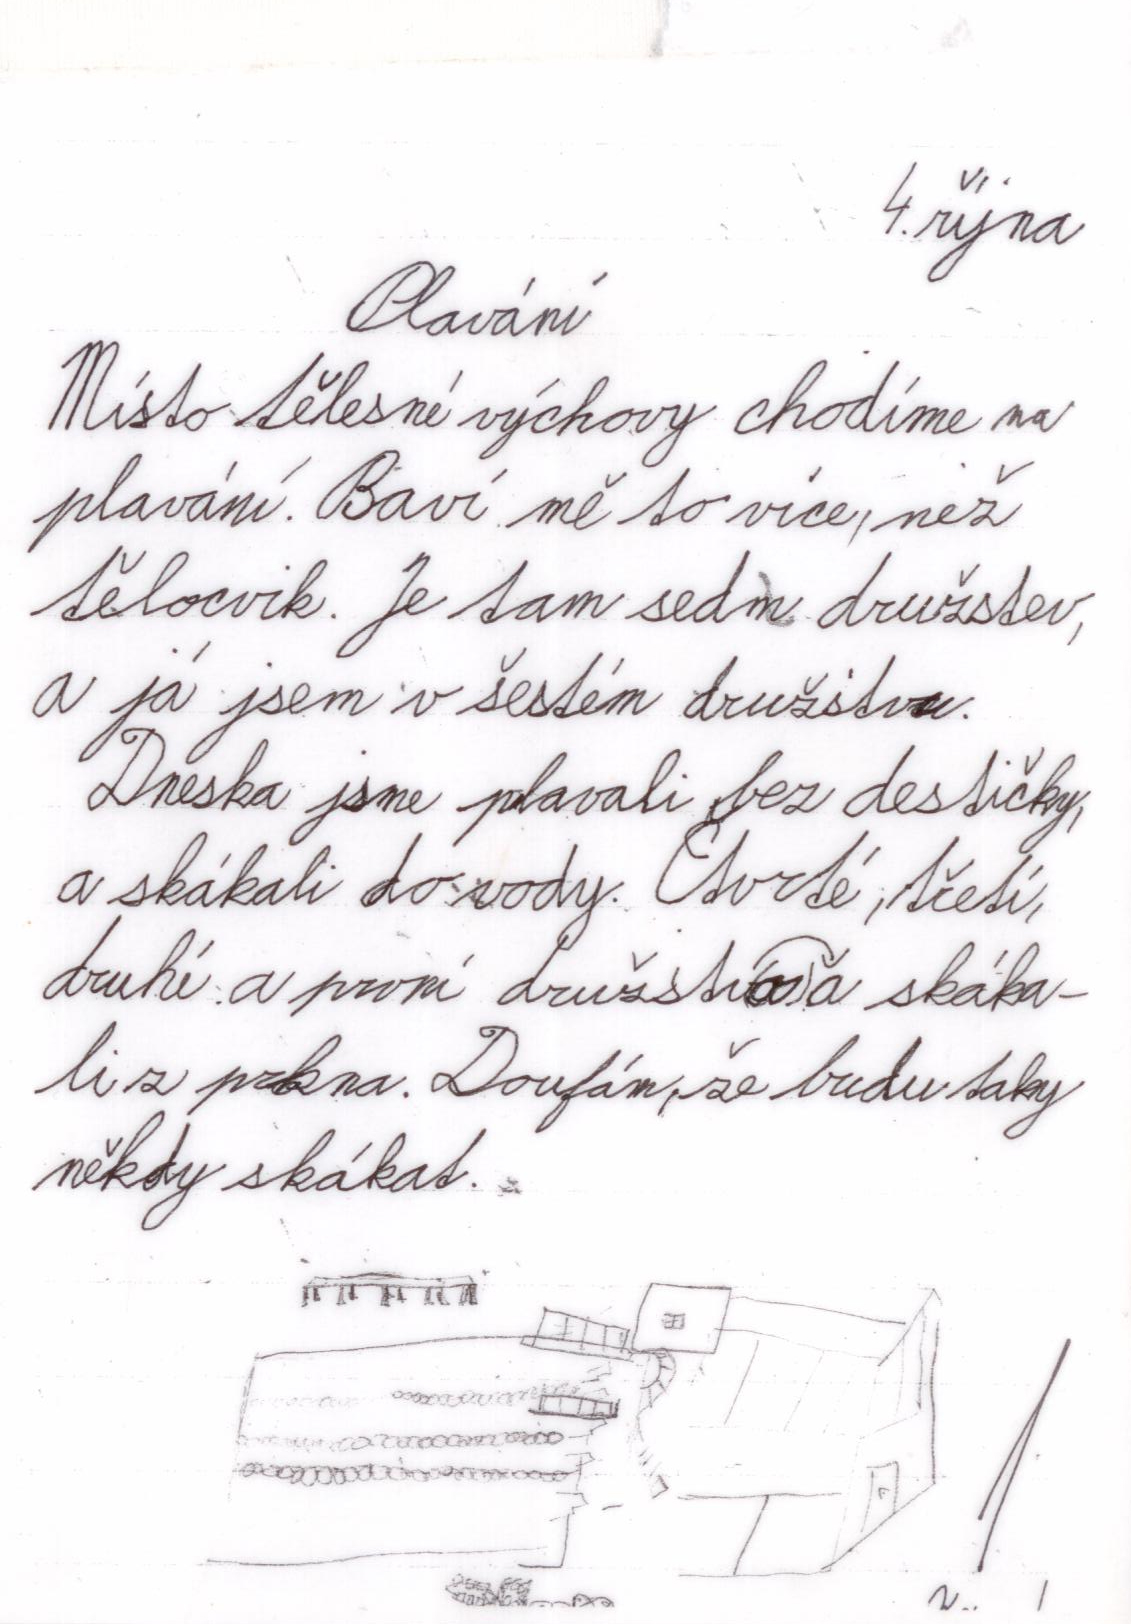 4. října
Plavání
Místo tělesné výchovy chodíme na
plavání. Baví mě to více, než
tělocvik. Je tam sedm družstev,
a já jsem v šestém družstvu.
Dneska jsme plavali bez destičky,
a skákali do vody. Čtvrté, třetí,
druhé a první skáka-
li z prkna. Doufám, že budu taky
někdy skákat.